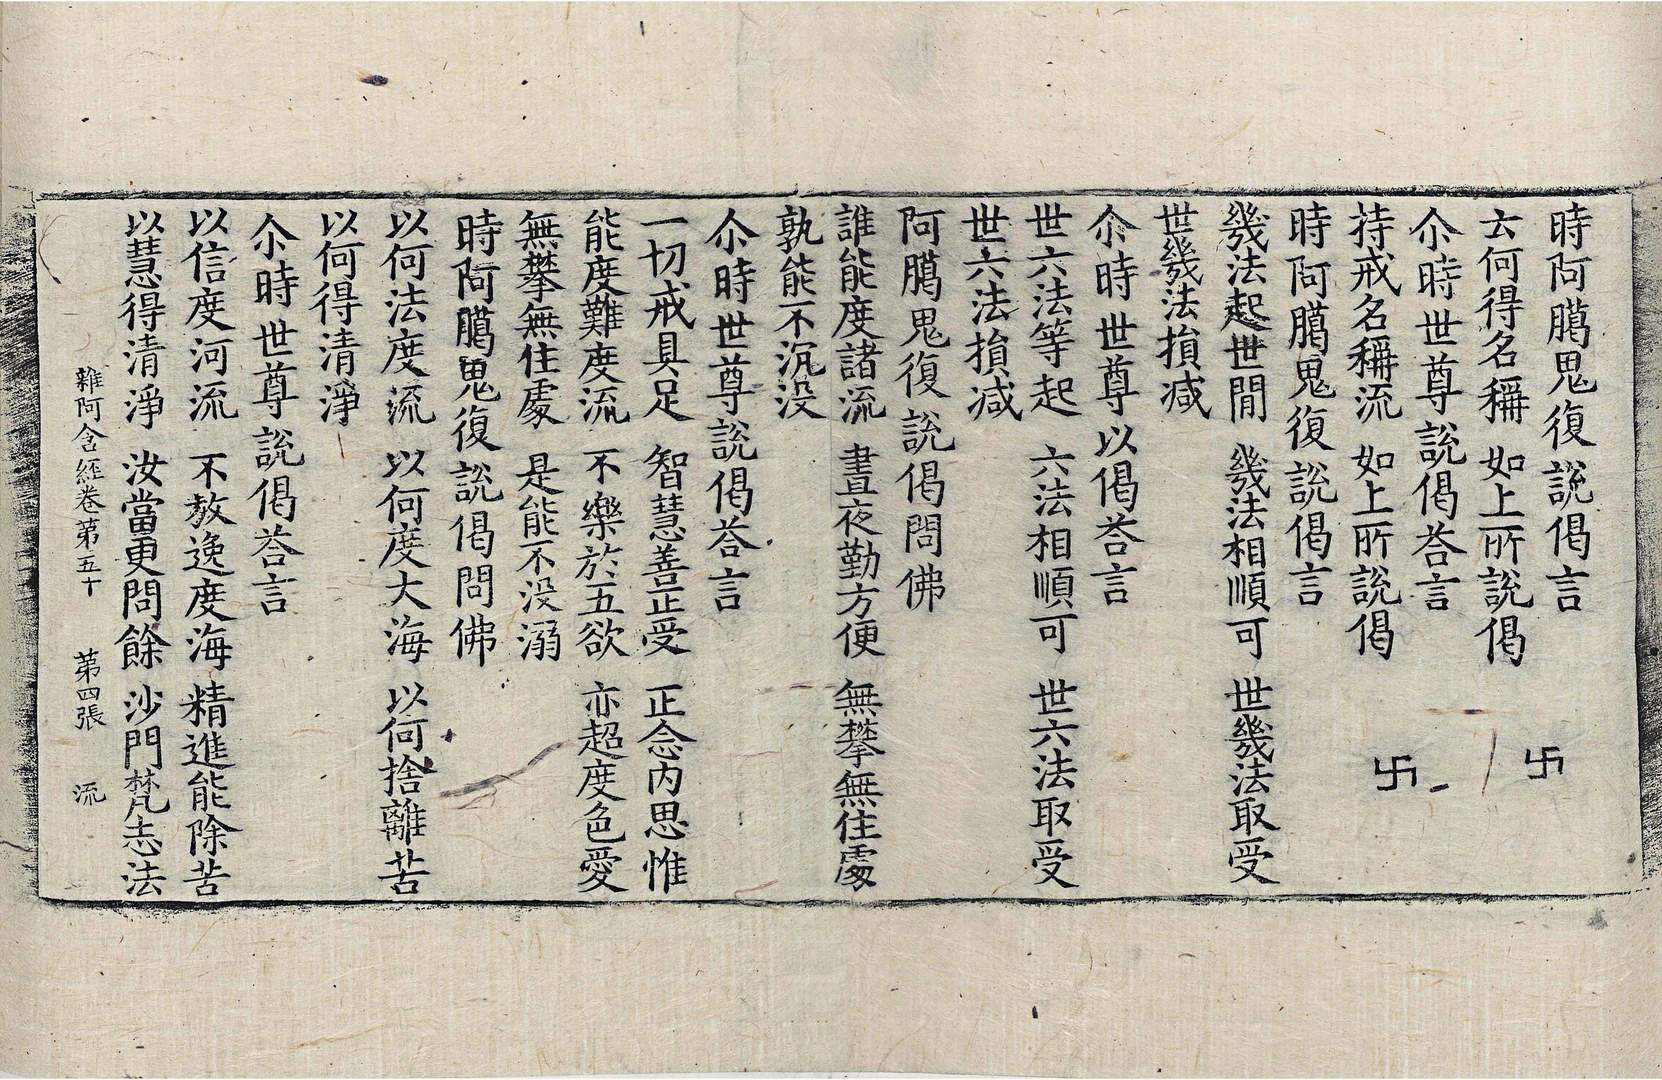 時阿臈鬼復說偈言
云何得名稱 如上所說偈 卐
尒時世尊說偈荅言
持戒名稱流 如上所說偈 卐
時阿臈鬼復說偈言
幾法起世閒 幾法相順可 世幾法取受
世幾法損減
尒時世尊以偈荅言
世六法等起 六法相順可 世六法取受
世六法損減
阿臈鬼復說偈問佛
誰能度諸流 晝夜勤方便 無攀無住處
孰能不沉没
尒時世尊說偈荅言
一切戒具足 智慧善正受 正念內思惟
能度難度流 不樂於五欲 亦超度色愛
無攀無住處 是能不没溺
時阿臈鬼復說偈問佛
以何法度流 以何度大海 以何捨離苦
以何得清淨
尒時世尊說偈荅言
以信度河流 不放逸度海 精進能除苦
以慧得清淨 汝當更問餘 沙門梵志法
雜阿含經卷第五十 第四張 流